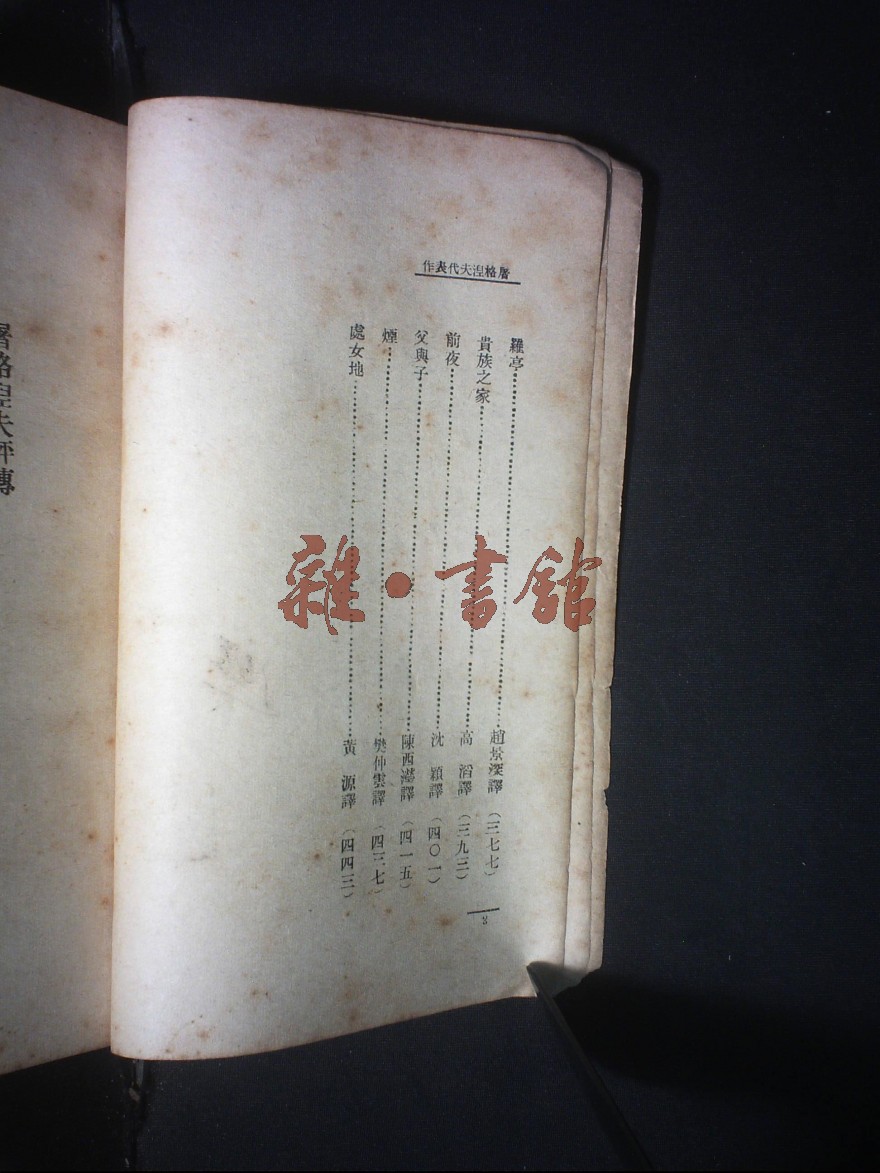 屠格涅夫代表作
羅亭……趙景深譯（三七七）
貴族之家……高滔譯（三九三）
前夜……沈穎譯（四〇一）
父與子……陳西瀅譯（四一五）
煙……樊仲雲譯（四三七）
處女地……黃源譯（四四三）
2
屠格涅夫評傳
雜·書館